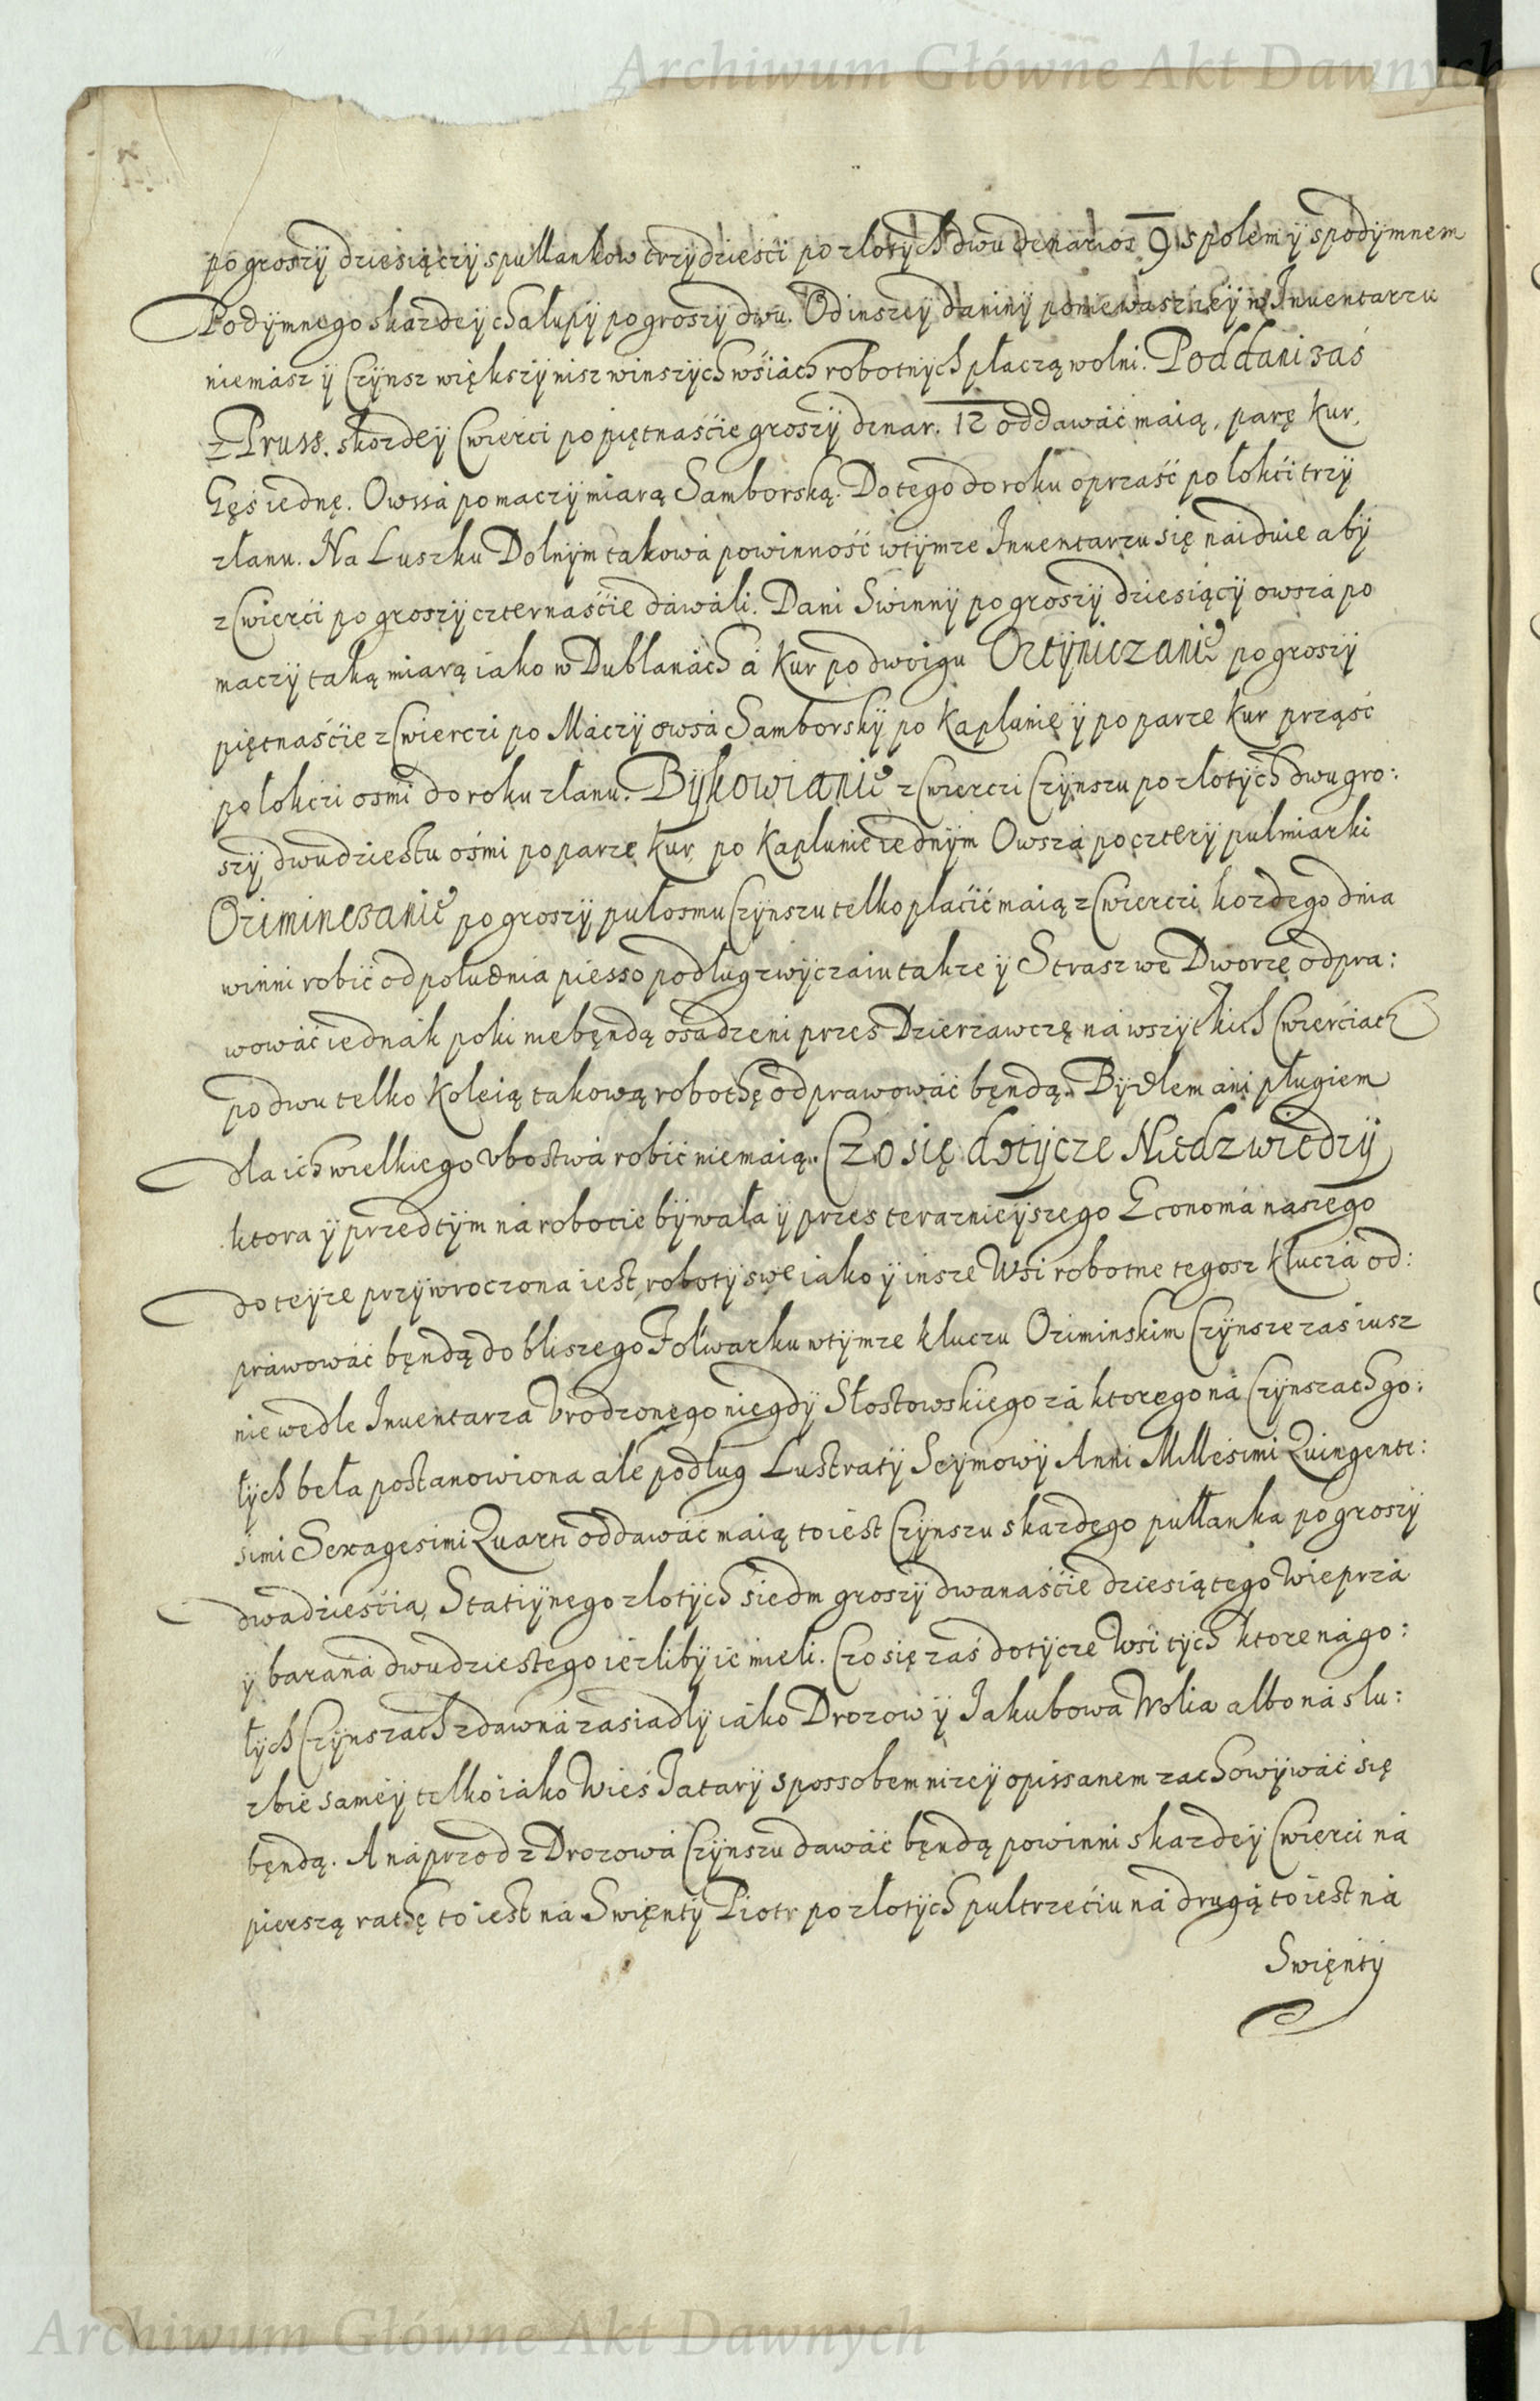 Archiwum Główne Akt Dawnych
po groszÿ dziesiączÿ spułłankow trzÿdziesci po złotÿch dwu denarios 9 społem ÿ spodÿmnem
Podÿmnego skazdeÿ chałupÿ po groszÿ dwu. Od inszeÿ daninÿ poniewasz ieÿ w Inuentarzu
niemasz ÿ Czÿnsz większÿ nisz winszÿch wsiach robotnÿch płaczą wolni. Poddani zas
z Pruss. skozdeÿ Cwierci po piętnaście groszÿ denar. 12 oddawáć maią, parę kur,
Gęś iednę. Owssá po maczÿ miarą Samborską. Do tego do roku oprząść po łokći trzÿ
złanu. Na Luszku Dolnÿm takowá powinność wtÿmze Inuentarzu się náiduie abÿ
z Cwierći po groszÿ czternaśćie dáwáli. Dani Swinnÿ po groszÿ dziesiącÿ owszá po
maczÿ taką miarą iako w Dublanách á kur po dwoigu Ortÿniczanie po groszÿ
piętnaśćie z Cwierczi po Máczÿ owsá Samborskÿ po Kapłunie ÿ po parze kur prząść
po łokczi osmi do roku złanu. Bÿkowianie z Cwierczi Czÿnszu po złotÿch dwu gro:
szÿ dwudziestu ośmi po parze kur po Kapłunie iednÿm Owszá po czterÿ pułmiarki
Oziminczanie po groszÿ pułosmu Czÿnszu telko płaćić maią z Cwierczi kozdego dnia
winni robić od południa piesso podług zwÿczaiu takze ÿ Strasz we Dworze odpra:
wowáć iednák poki niebęndą osadzeni przes Dzierzawczę ná wszÿtkich Cwierćiach
po dwu telko Koleią takową robothę odprawowáć będą. Bÿdłem áni pługiem
dla ich wielkiego vbostwá robić niemaią. Czo się dotÿcze Niedzwiedzÿ
ktora ÿ przedtÿm ná robocie bÿwáła ÿ przes teraznieÿszego Economá naszego
do teÿze przÿwroczona iest, robotÿ swe iako ÿ insze Wsi robotne tegosz kluczá od:
práwowáć będą do bliszego Folwarku wtÿmze kluczu Oziminskim Czÿnsze zás iusz
nie wedle Inuentarza Vrodzonego niegdÿ Słostowskiego zá ktorego ná Czÿnszach go:
łÿch beła postanowiona ale podług Lustratÿ Seÿmowÿ Anni Millesimi Quingente:
simi Sexagesimi Quarti oddawáć maią to iest Czÿnszu skazdego pułłanka po groszÿ
dwadziesćia, Statiÿnego złotÿch siedm groszÿ dwanaśćie dziesiątego Wieprzá
ÿ baraná dwudziestego iezlibÿ ie mieli. Czo się zaś dotÿcze Wsi tÿch ktore ná go:
łÿch Czÿnszach zdawná zasiadłÿ iáko Drozow ÿ Jakubowa Wolia albo ná słu:
zbie sameÿ telko iáko Wieś Tatarÿ spossobem nizeÿ opissanem zachowÿwáć się
będą. A náprzod z Drozowá Czÿnszu dawáć będą powinni skazdeÿ Cwierci ná
pierszą rathę to iest ná Swiętÿ Piotr po złotÿch pułtrzećiu ná drugą to iest ná
Swiętÿ
Archiwum Główne Akt Dawnych